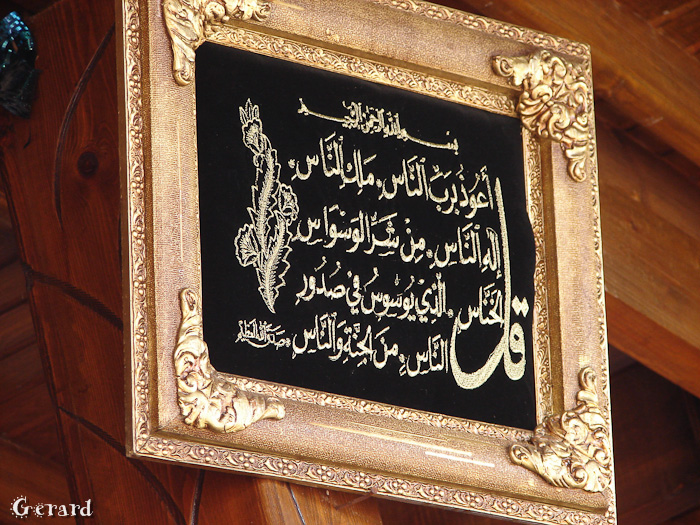 بسم الله الرحمن الرحيم
قل أعوذ برب الناس * ملك الناس *
إله الناس * من شر الوسواس
الخناس * الذي يوسوس في صدور
الناس * من الجنة والناس *
صدق الله العظيم
Gerard